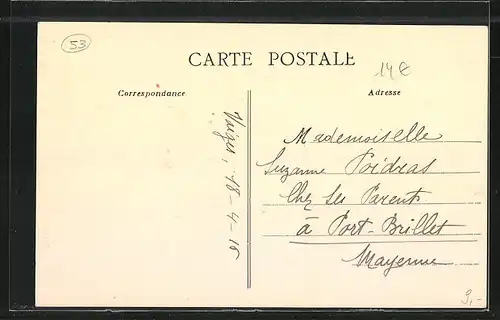 53
CARTE POSTALE
14€
Correspondance
Adresse
Vaiges, 18-4-16
Mademoiselle
Suzanne Poidras
Chez Ses Parents
à Port-Brillet
Mayenne
9,-